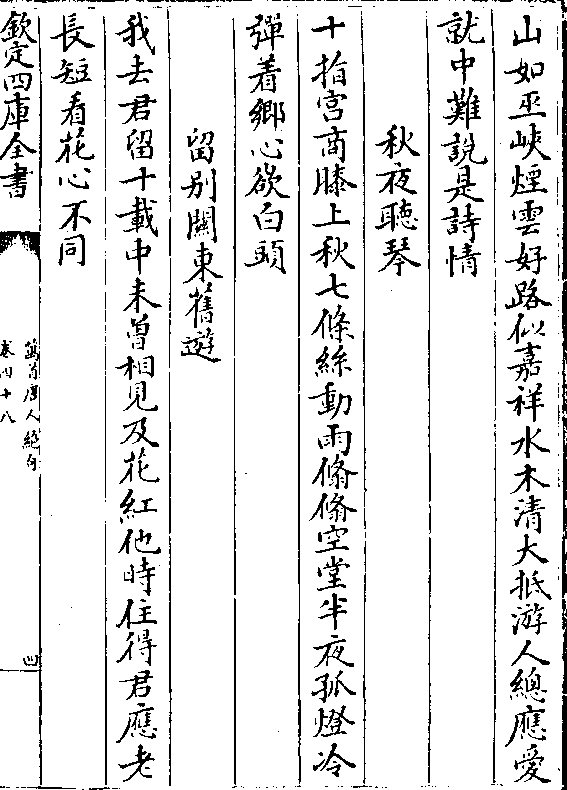 山如巫峽煙雲好路似嘉祥水木清大抵游人總應愛
就中難說是詩情
秋夜聽琴
十指宮商膝上秋七條絲動雨翛翛空堂半夜孤燈冷
彈着鄉心欲白頭
留别關東舊遊
我去君留十載中未曾相見及花紅他時住得君應老
長短看花心不同
欽定四庫全書
萬首唐人絶句
卷四十八
四